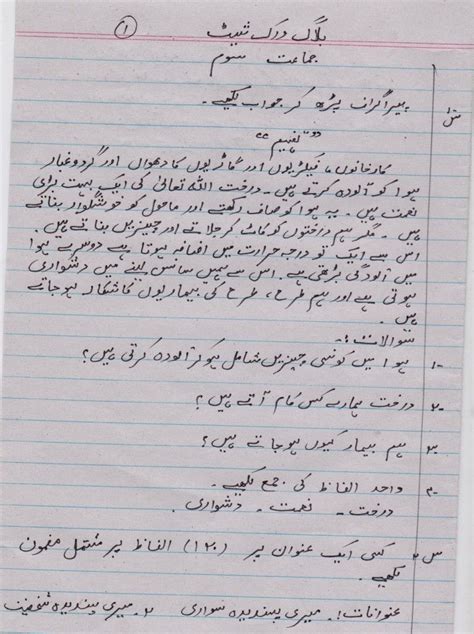 بلاگ ورک شیٹ ①
جماعت سوم
س۱ پیراگراف پڑھ کر جواب لکھیے۔
"تفہیم"
کارخانوں، فیکٹریوں اور گاڑیوں کا دھواں اور گردوغبار
ہوا کو آلودہ کرتے ہیں۔ درخت اللہ تعالیٰ کی ایک بہت بڑی
نعمت ہیں۔ یہ ہوا کو صاف رکھتے اور ماحول کو خوشگوار بناتے
ہیں۔ مگر ہم درختوں کو کاٹ کر جلاتے اور چیزیں بناتے ہیں۔
اس سے ایک تو درجہ حرارت میں اضافہ ہوتا ہے دوسرے ہوا
میں آلودگی بڑھتی ہے۔ اس سے ہمیں سانس لینے میں دشواری
ہوتی ہے اور ہم طرح، طرح کی بیماریوں کا شکار ہو جاتے
ہیں۔
سوالات:-
۱- ہوا میں کونسی چیزیں شامل ہو کر آلودہ کرتی ہیں؟
۲- درخت ہمارے کس کام آتے ہیں؟
۳- ہم بیمار کیوں ہو جاتے ہیں؟
۴- واحد الفاظ کی جمع لکھیے۔
درخت - نعمت - دشواری
س۲ کسی ایک عنوان پر (۱۲۰) الفاظ پر مشتمل مضمون
لکھیے۔
عنوانات: ۱ میری پسندیدہ سواری ۲ میری پسندیدہ شخصیت